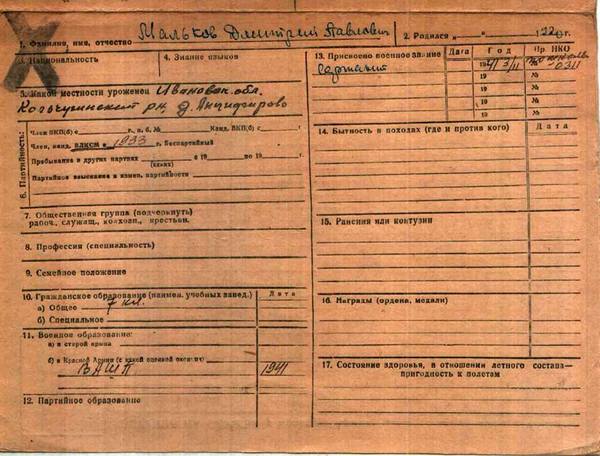 1. Фамилия, имя, отчество Мальков Дмитрий Павлович
2. Родился 1920г.
3. Национальность
4. Знание языков
5. Какой местности уроженец Ивановск. обл.
Кольчугинский рн, д. Анциферово
6. Партийность:
Член ВКП(б) с г., п. б. № Канд. ВКП(б) с г.
Член, канд. ВЛКСМ с 1933 г. Беспартийный
Пребывание в других партиях с 19 по 19 г.
(каких)
Партийные взыскания и измен. партийности
7. Общественная группа (подчеркнуть)
рабоч., служащ., колхозн., крестьян.
8. Профессия (специальность)
9. Семейное положение
10. Гражданское образование (наимен. учебных завед.) Дата
а) Общее 7 кл.
б) Специальное
11. Военное образование:
а) в старой армии
б) в Красной Армии (с какой военной
ВАШП 1941
12. Партийное образование
13. Присвоено военное звание Дата Год Пр. НКО
сержант 1941 3/III № 0311
19 №
19 №
19 №
14. Бытность в походах (где и против кого) Дата
15. Ранения или контузии
16. Награды (ордена, медали)
17. Состояние здоровья, в отношении летного состава—
пригодность к полетам